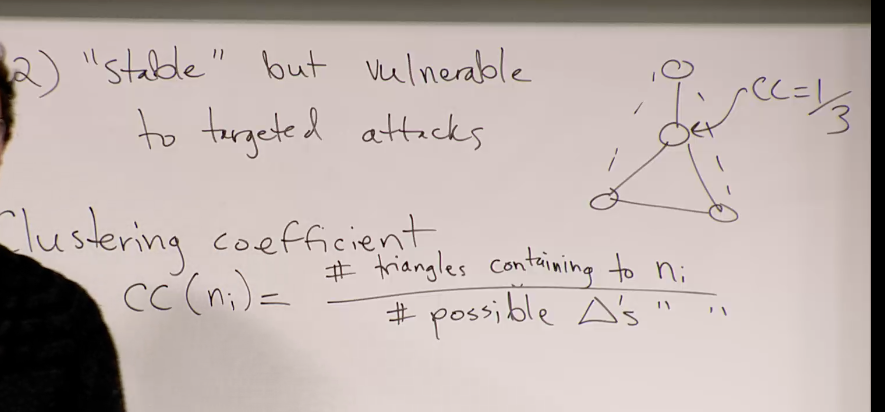 2) "stable" but vulnerable
to targeted attacks
CC=1/3
Clustering coefficient
CC(ni)= # triangles containing to ni
# possible Δ's " "